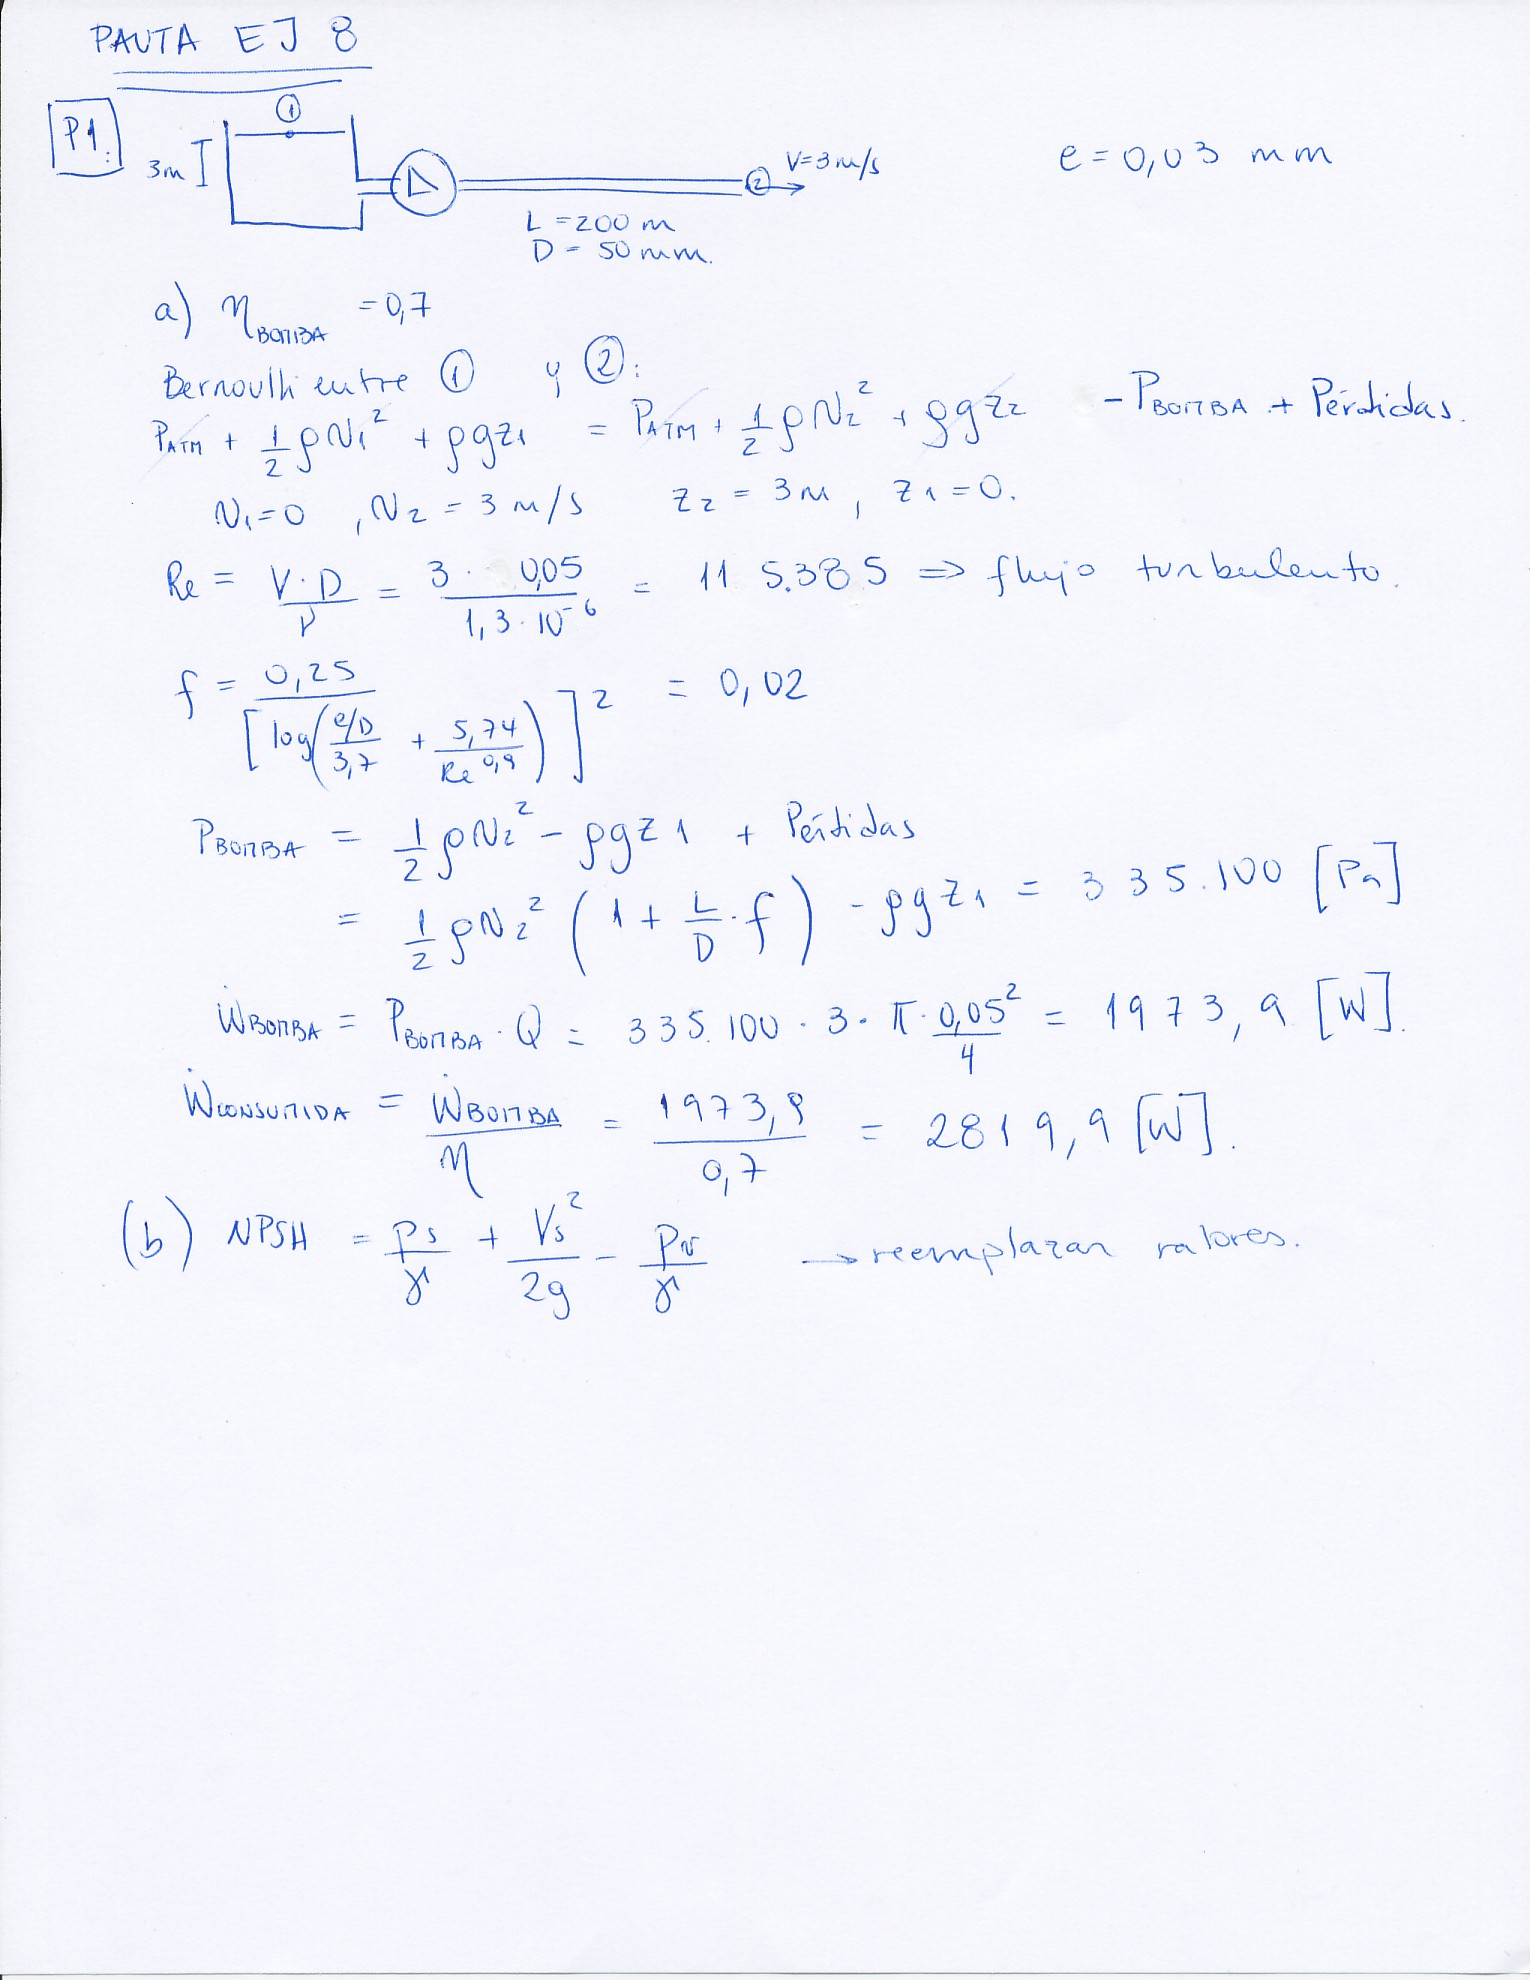 PAUTA EJ 8
P1.
①
3m
② V=3m/s
e = 0,03 mm
L = 200 m
D = 50 mm.
a) η BOMBA = 0,7
Bernoulli entre ① y ②:
P_ATM + 1/2 ρ v₁² + ρ g z₁ = P_ATM + 1/2 ρ v₂² + ρ g z₂ - P_BOMBA + Pérdidas.
v₁ = 0 , v₂ = 3 m/s z₂ = 3m , z₁ = 0.
Re = V·D/ν = 3 · 0,05/1,3·10⁻⁶ = 115.385 ⇒ flujo turbulento.
f = 0,25/[log(e/D/3,7 + 5,74/Re^0,9)]² = 0,02
P_BOMBA = 1/2 ρ v₂² - ρ g z₁ + Pérdidas
= 1/2 ρ v₂² (1 + L/D · f) - ρ g z₁ = 335.100 [Pa]
Ẇ_BOMBA = P_BOMBA · Q = 335.100 · 3 · π · 0,05²/4 = 1973,9 [W].
Ẇ_CONSUMIDA = Ẇ_BOMBA/η = 1973,9/0,7 = 2819,9 [W].
(b) NPSH = ps/γ + Vs²/2g - Pv/γ → reemplazar valores.